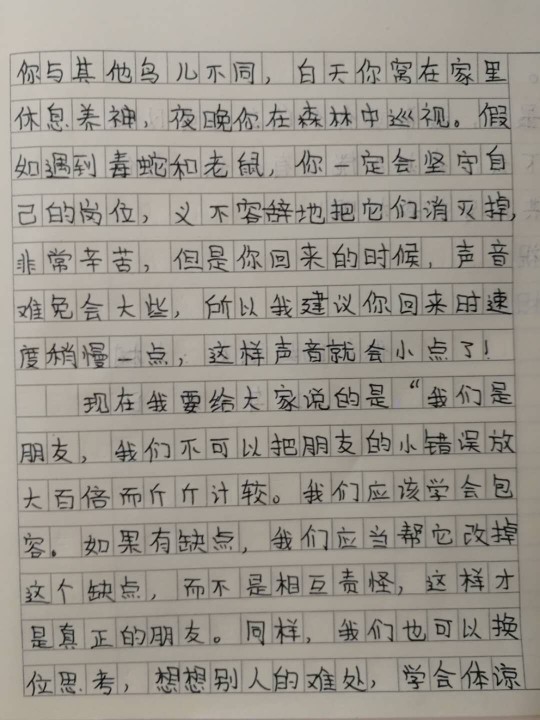 你与其他鸟儿不同，白天你窝在家里
休息养神，夜晚你在森林中巡视。假
如遇到毒蛇和老鼠，你一定会坚守自
己的岗位，义不容辞地把它们消灭掉，
非常辛苦，但是你回来的时候，声音
难免会大些，所以我建议你回来时速
度稍慢一点，这样声音就会小点了！
现在我要给大家说的是“我们是
朋友，我们不可以把朋友的小错误放
大百倍而斤斤计较。我们应该学会包
容。如果有缺点，我们应当帮它改掉
这个缺点，而不是相互责怪，这样才
是真正的朋友。同样，我们也可以换
位思考，想想别人的难处，学会体谅